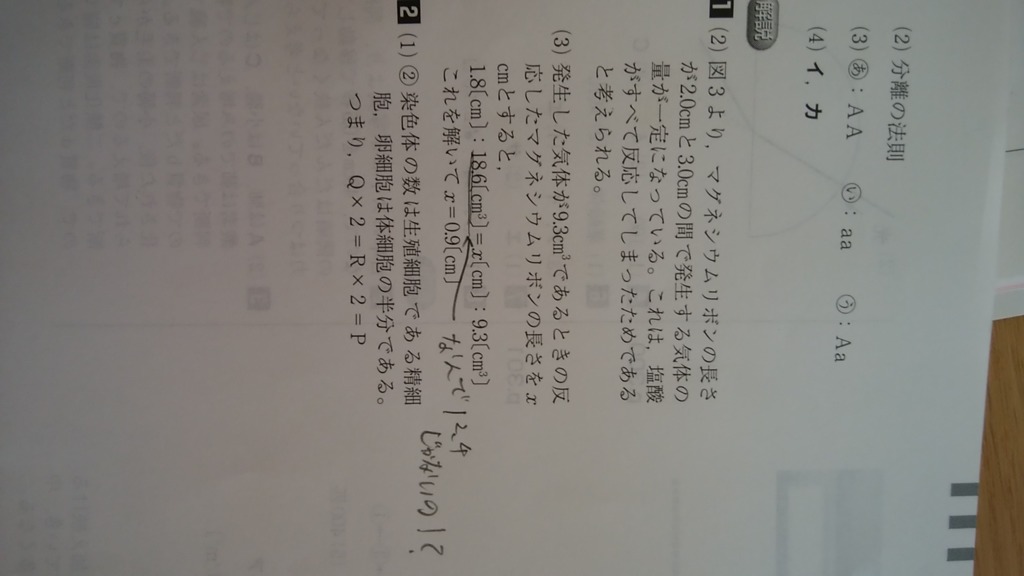 (2) 分離の法則
(3) あ：ＡＡ　い：aa　う：Aa
(4) イ，カ
解説
1 (2) 図3より，マグネシウムリボンの長さ
が2.0cmと3.0cmの間で発生する気体の
量が一定になっている。これは，塩酸
がすべて反応してしまったためである
と考えられる。
(3) 発生した気体が9.3cm³であるときの反
応したマグネシウムリボンの長さをx
cmとすると，
1.8[cm]：18.6[cm³]＝x[cm]：9.3[cm³]
これを解いてx＝0.9[cm]
なんで12.4
じゃないの!?
2 (1) ② 染色体の数は生殖細胞である精細
胞，卵細胞は体細胞の半分である。
つまり，Q×2＝R×2＝P